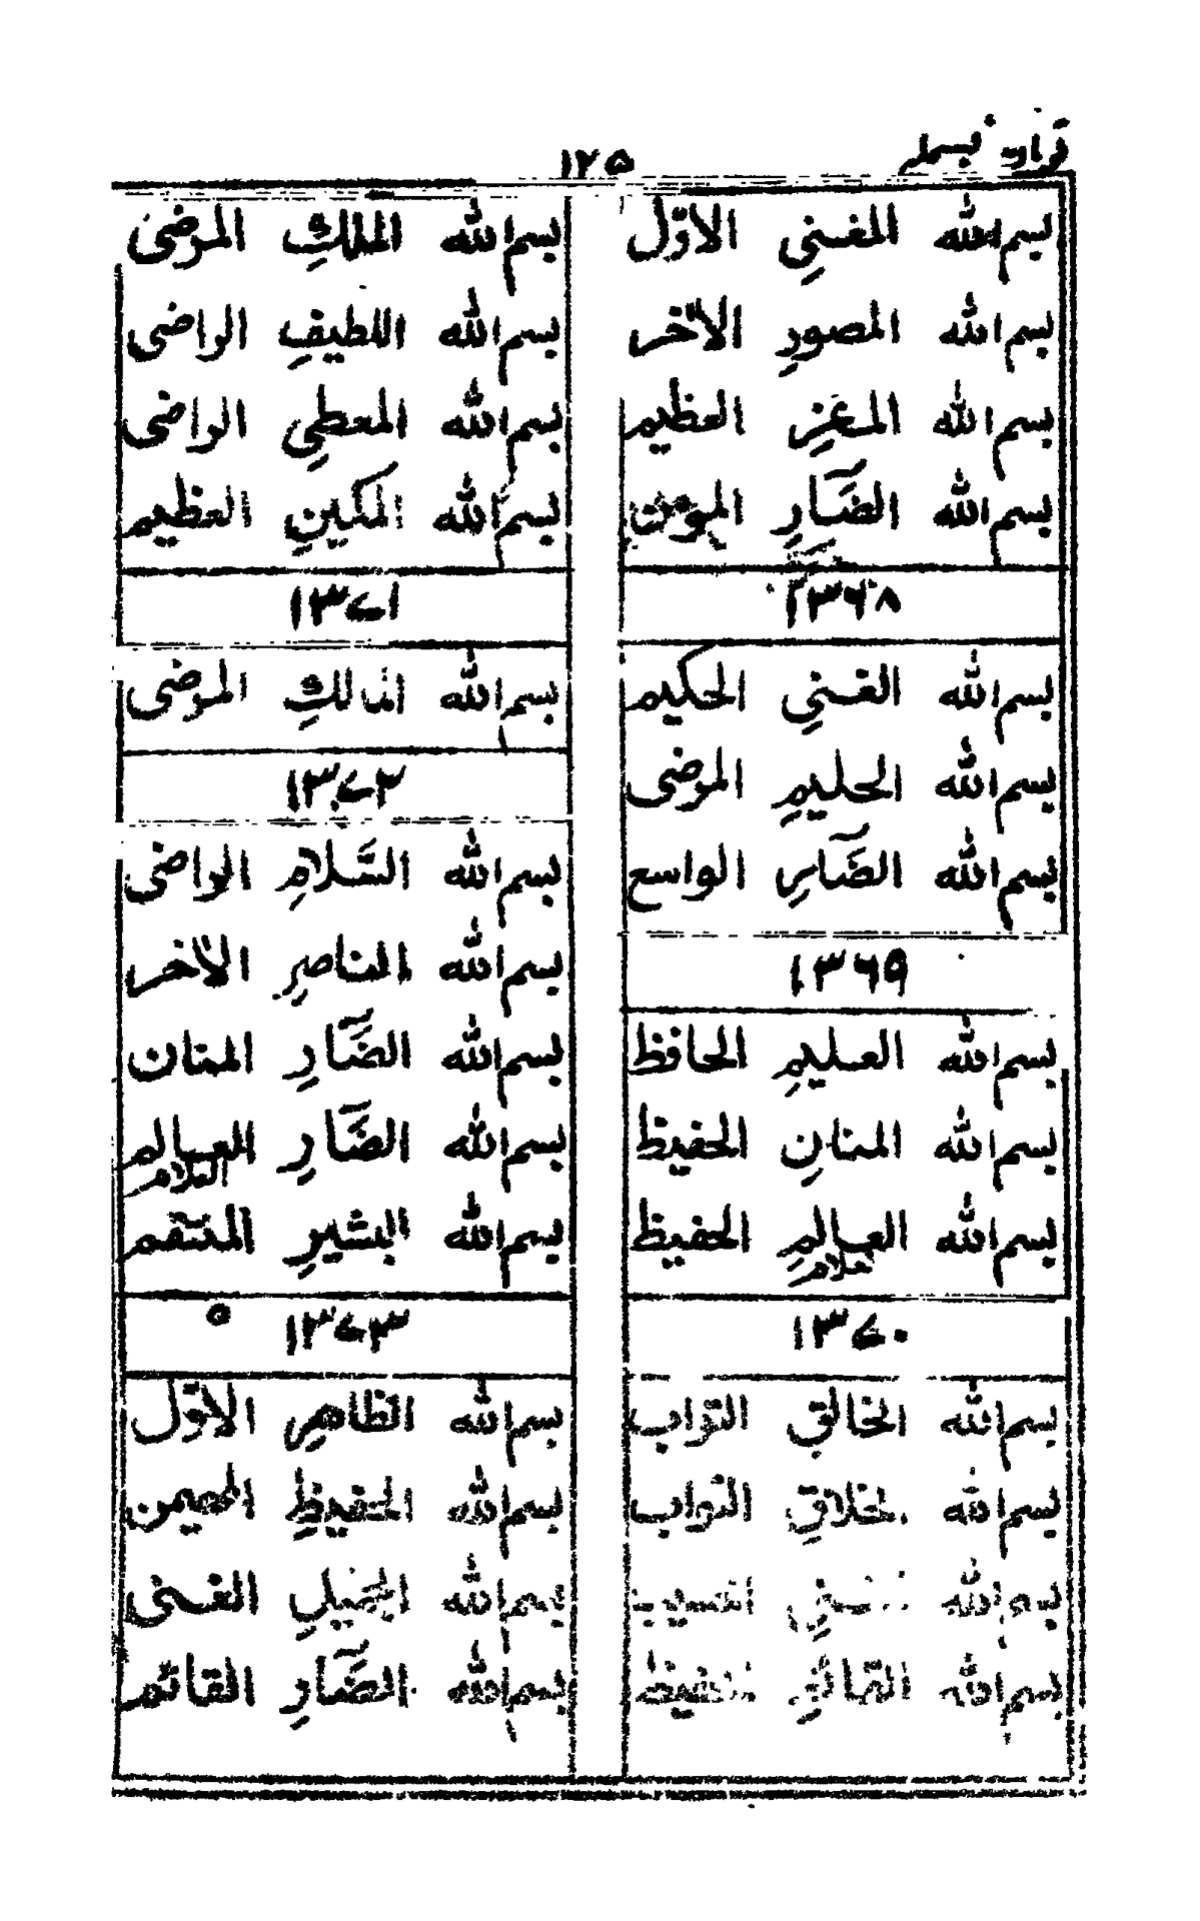 ١٢٥
بسم الله المغنيِ الاوّل
بسم الله المصورِ الآخر
بسم الله المعزِ العظيم
بسم الله الضّارِ المؤمن
١٣٦٨
بسم الله الغنيِ الحكيم
بسم الله الحليمِ المرضى
بسم الله الضّارِ الواسع
١٣٦٩
بسم الله العليمِ الحافظ
بسم الله المنانِ الحفيظ
بسم الله العالمِ الحفيظ
علام
١٣٧٠
بسم الله الخالقِ التواب
بسم الله الخلاقِ التواب
بسم الله
بسم الله القائمِ الحفيظ
بسم الله الملكِ المرضى
بسم الله اللطيفِ الراضى
بسم الله المعطيِ الراضى
بسم الله المكينِ العظيم
١٣٧١
بسم الله المالكِ المرضى
١٣٧٢
بسم الله السّلامِ الراضى
بسم الله الناصرِ الآخر
بسم الله الضّارِ المنان
بسم الله الضّارِ العالم
العلام
بسم الله البشيرِ المنتقم
١٣٧٣
بسم الله الظاهرِ الاوّل
بسم الله الحفيظِ المهيمن
بسم الله الجميلِ الغنى
بسم الله الضّارِ القائم